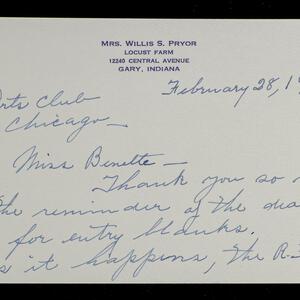 MRS. WILLIS S. PRYOR
LOCUST FARM
12240 CENTRAL AVENUE
GARY, INDIANA
February 28, 19
rts Club
Chicago —
Miss Benette —
Thank you so
the reminder of the dea
for entry blanks.
s it happens, the R.